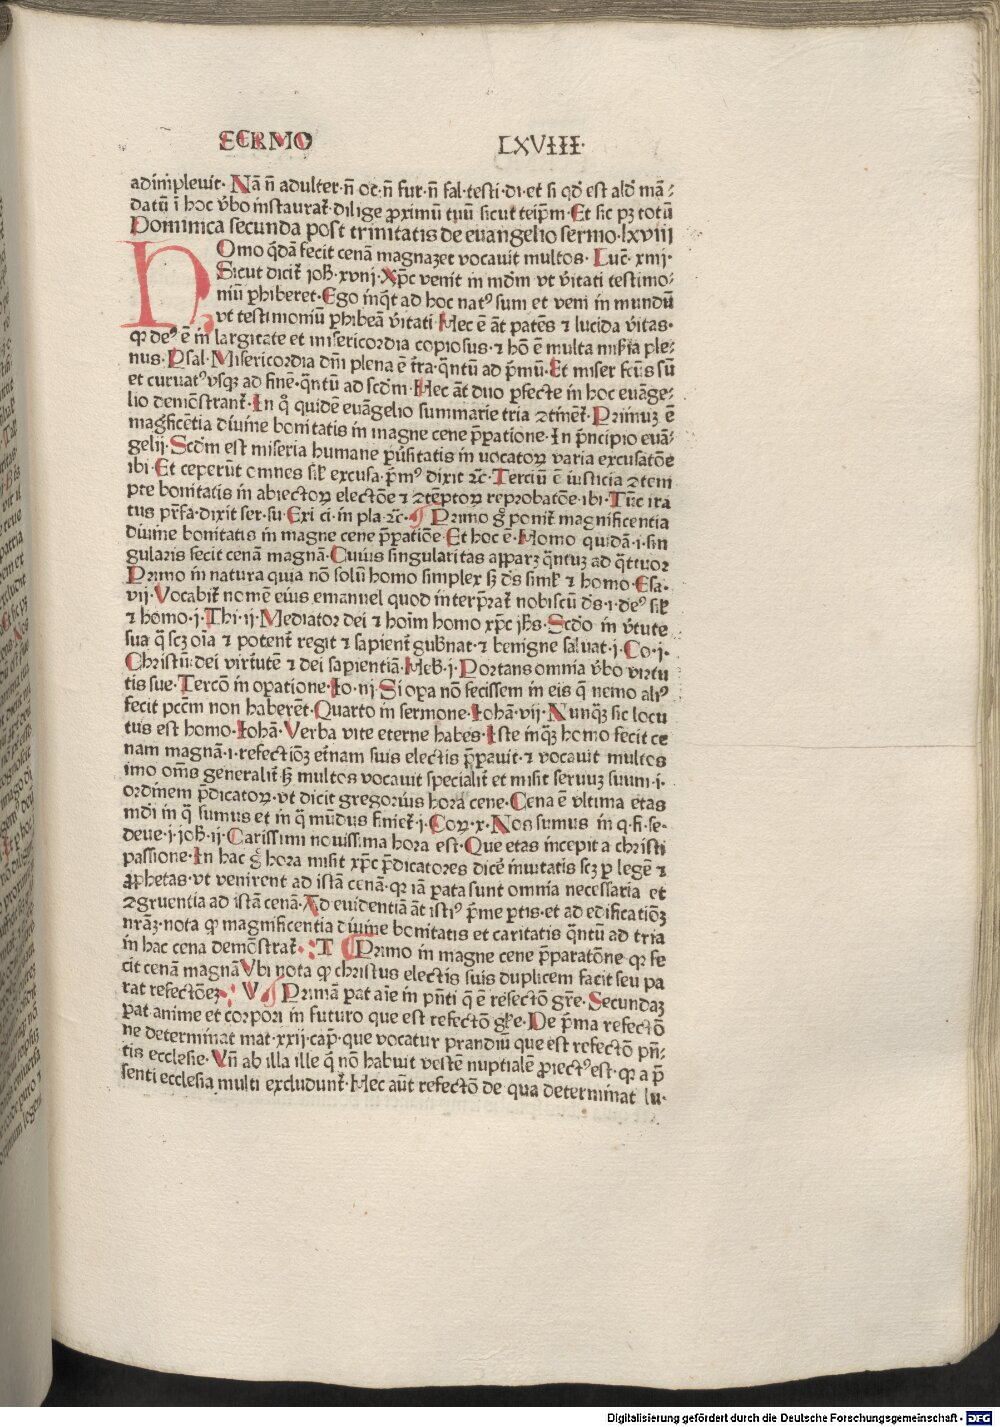 SERMO LXVIII·
adimpleuit· Nā n̄ adulter·n̄ oc·n̄ fur·n̄ fal·testi·di·et si qd̄ est ald̄ mā⸗
datū ī hoc v̄bo instaurat̄·dilige ꝓximū tuū sicut teip̄m·Et sic pꝫ totū
Dominica secunda post trinitatis de euangelio sermo·lxviii
HOmo q̄dā fecit cenā magnaꝫet vocauit multos· Luc̄· xiiij·
Sicut dicit̄ ioh̄· xviij· Xp̄c venit in mdm̄ vt v̄itati testimo⸗
niū ꝑhiberet·Ego inq̄t ad hoc natꝰ sum et veni in mundū
vt testimoniū ꝑhibeā v̄itati·Hec ē āt patēs ⁊ lucida v̄itas·
qꝛ deꝰ ē in largitate et misericordia copiosus·⁊ hō ē multa mis̄ia ple⸗
nus·Psal·Misericordia dn̄i plena ē t̄ra·q̄ntū ad p̄mū·Et miser fc̄us sū
et curuatꝰ vsqꝫ ad finē·q̄ntū ad scd̄m·Hec āt duo ꝑfecte in hoc euāge⸗
lio demōstrant̄·In qͦ quidē euāgelio summarie tria ꝯtinēt̄·Primuꝫ ē
magn̄ficētia diuine bonitatis in magne cene p̄ꝑatione·In p̄ncipio euā⸗
gelij·Scd̄m est miseria humane ꝑu̅sitatis in uocatoꝝ varia excusatōe
ibi·Et ceperūt omnes sil̄ excusa·p̄mꝰ dixit ⁊c̄·Terciū ē iusticia ꝯtem
pte bonitatis in abiectoꝝ electōe ⁊ ꝯtēptoꝝ reprobatōe·ibi·Tūc ira
tus pr̄fa·dixit ser·su·Exi ci·in pla·⁊c̄·¶ Primo gͦ ponit̄ magnificentia
diuine bonitatis in magne cene p̄ꝑatiōe·Et hoc ē·Homo quidā·i·sin
gularis fecit cenā magnā·Cuius singularitas apparꝫ q̄ntuꝫ ad q̄ttuor
Primo in natura quia nō solū homo simplex sꝫ ds̄ simł ⁊ homo·Esa·
vij·Vocabit̄ nomē eius emanuel quod interp̄rat̄ nobiscū ds̄·i·deꝰ sił
⁊ homo·j·Thi·ij·Mediator dei ⁊ hoīm homo xp̄c jh̄s·Scd̄o in v̄tute
sua q̄ scꝫ oīa ⁊ potent̄ regit ⁊ sapient̄ gub̄nat·⁊ benigne saluat·j·Co·j·
Christū:dei virtutē ⁊ dei sapientiā·Heb̄·j·Portans omnia v̄bo virtu
tis sue·Tercō in oꝑatione·Io·iij·Si oꝑa nō fecissem in eis q̄ nemo aliꝰ
fecit pcc̄m non haberēt·Quarto in sermone·Iohā·vij·Nunqͣꝫ sic locu
tus est homo·Iohā·Verba vite eterne habes·Iste inqͣꝫ homo fecit ce
nam magnā·i·refectiōꝫ et̄nam suis electis p̄ꝑauit·⁊ vocauit multos
imo om̄s generalit̄ sꝫ multos vocauit specialit̄ et misit seruuꝫ suum·i·
ordinem p̄dicatoꝝ·vt dicit gregorius hora cene·Cena ē vltima etas
mdi in q̄ sumus et in q̄ mūdus finiet̄·j·Coꝝ·x·Nos sumus in q·fi·se⸗
deue·i·joh̄·ij·Carissimi nouissima hora est·Que etas incepit a christi
passione·In hac gͦ hora misit xp̄c p̄dicatores dicē inuitatis scꝫ ꝑ legē ⁊
ꝓphetas·vt venirent ad istā cenā·qꝛ iā ꝑata sunt omnia necessaria et
ꝯgruentia ad istā cenā·Ad euidentiā āt istiꝰ p̄me ꝑtis·et ad edificatiōꝫ
nr̄aꝫ·nota qꝙ magnificentia diuine bonitatis et caritatis q̄ntū ad tria
in hac cena demōstrat̄·:T ¶Primo in magne cene p̄ꝑatōne·qꝛ fe
cit cenā magnā Vbi nota qꝙ christus electis suis duplicem facit seu pa
rat refectōeꝫ·: V ¶Primā ꝑat aīe in p̄nti q̄ ē refectō gr̄e·Secundaꝫ
ꝑat anime et corpori in futuro que est refectō gl̄e·De p̄ma refectō
ne determinat mat·xxij·cap̄·que vocatur prandiū que est refectō pn̄⸗
tis ecclesie·Vn̄ ab illa ille q̄ nō habuit vestē nuptialē ꝓiectꝰ est·qꝛ a p̄
senti ecclesia multi excludunt̄·Hec aūt refectō de qua determinat lu·
Digitalisierung gefördert durch die Deutsche Forschungsgemeinschaft - DFG